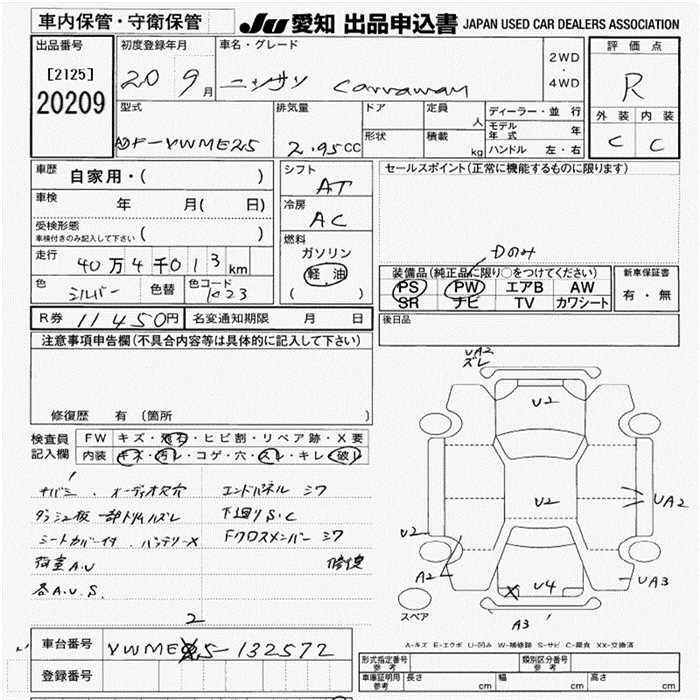 車内保管・守衛保管 JU 愛知 出品申込書 JAPAN USED CAR DEALERS ASSOCIATION
出品番号 初度登録年月 車名・グレード 評価点
[2125] 20 9月 ニッサン caravan 2WD・4WD R
20209
型式 排気量 ドア 定員 人 ディーラー・並行 外装 内装
ADF-VWME25 2.95CC 形状 積載 kg モデル年式 年 C C
ハンドル 左・右
車歴 自家用・( ) シフト AT セールスポイント(正常に機能するものに限ります)
車検 年 月( 日) 冷房 AC
受検形態 車検付きのみ記入して下さい ( )
燃料 ガソリン
走行 40万4千013km 軽油 Dのみ
( ) 装備品(純正品に限り○をつけてください) 新車保証書
色 シルバー 色替 色コード K23 PS PW エアB AW 有・無
SR ナビ TV カワシート
R券 11450円 名変通知期限 月 日 後日品
注意事項申告欄(不具合内容等は具体的に記入して下さい)
修復歴 有 (箇所
検査員記入欄 FW キズ・飛石・ヒビ割・リペア跡・X要
内装 キズ・汚レ・コゲ・穴・スレ・キレ・破レ
オーディオ欠 エンドパネル シワ
ダッシュ板一部トリムハズレ 下廻りS.C
シートカバー付.バッテリーX Fクロスメンバー シワ
荷室A.U
各A.U.S.
UA2
ズレ
U2
U2
UA2
U2
A2
X U4
UA3
A3
スペア
A-キズ E-エクボ U-凹み W-補修跡 S-サビ C-腐食 XX-交換済
2
車台番号 VWME25-132572
登録番号
形式指定番号 参考 類別区分番号 参考
車庫証明用 参考 長さ cm 幅 cm 高さ cm